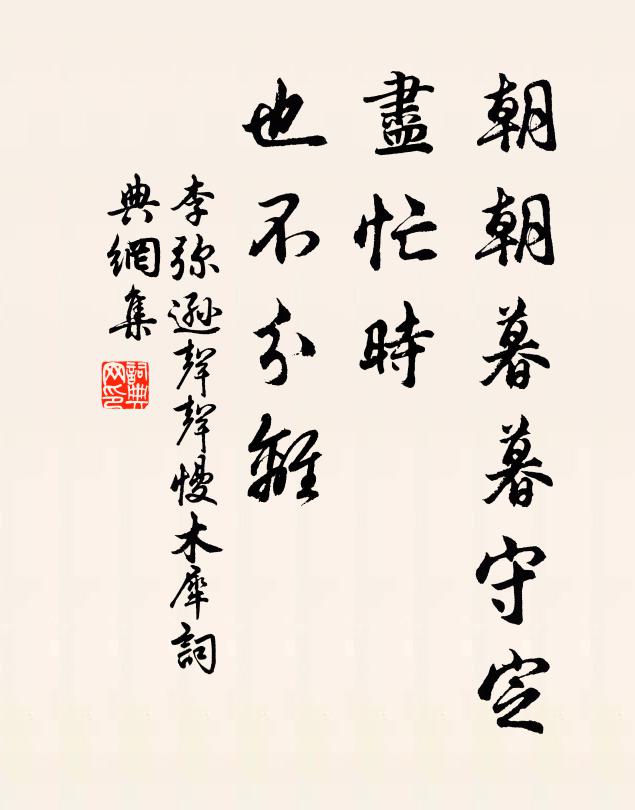 朝朝暮暮守定
盡忙時
也不分離
李弥遜聲聲慢木犀詞
典網集
詞典
网印